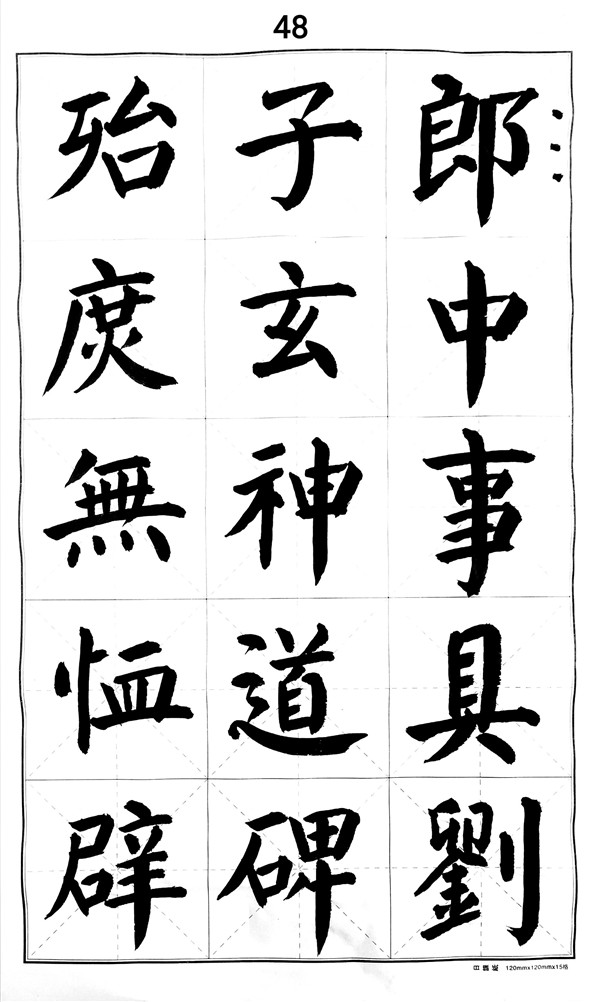 48
郎中事具劉
子玄神道碑
殆庶無恤辟
120mmx120mmx15格